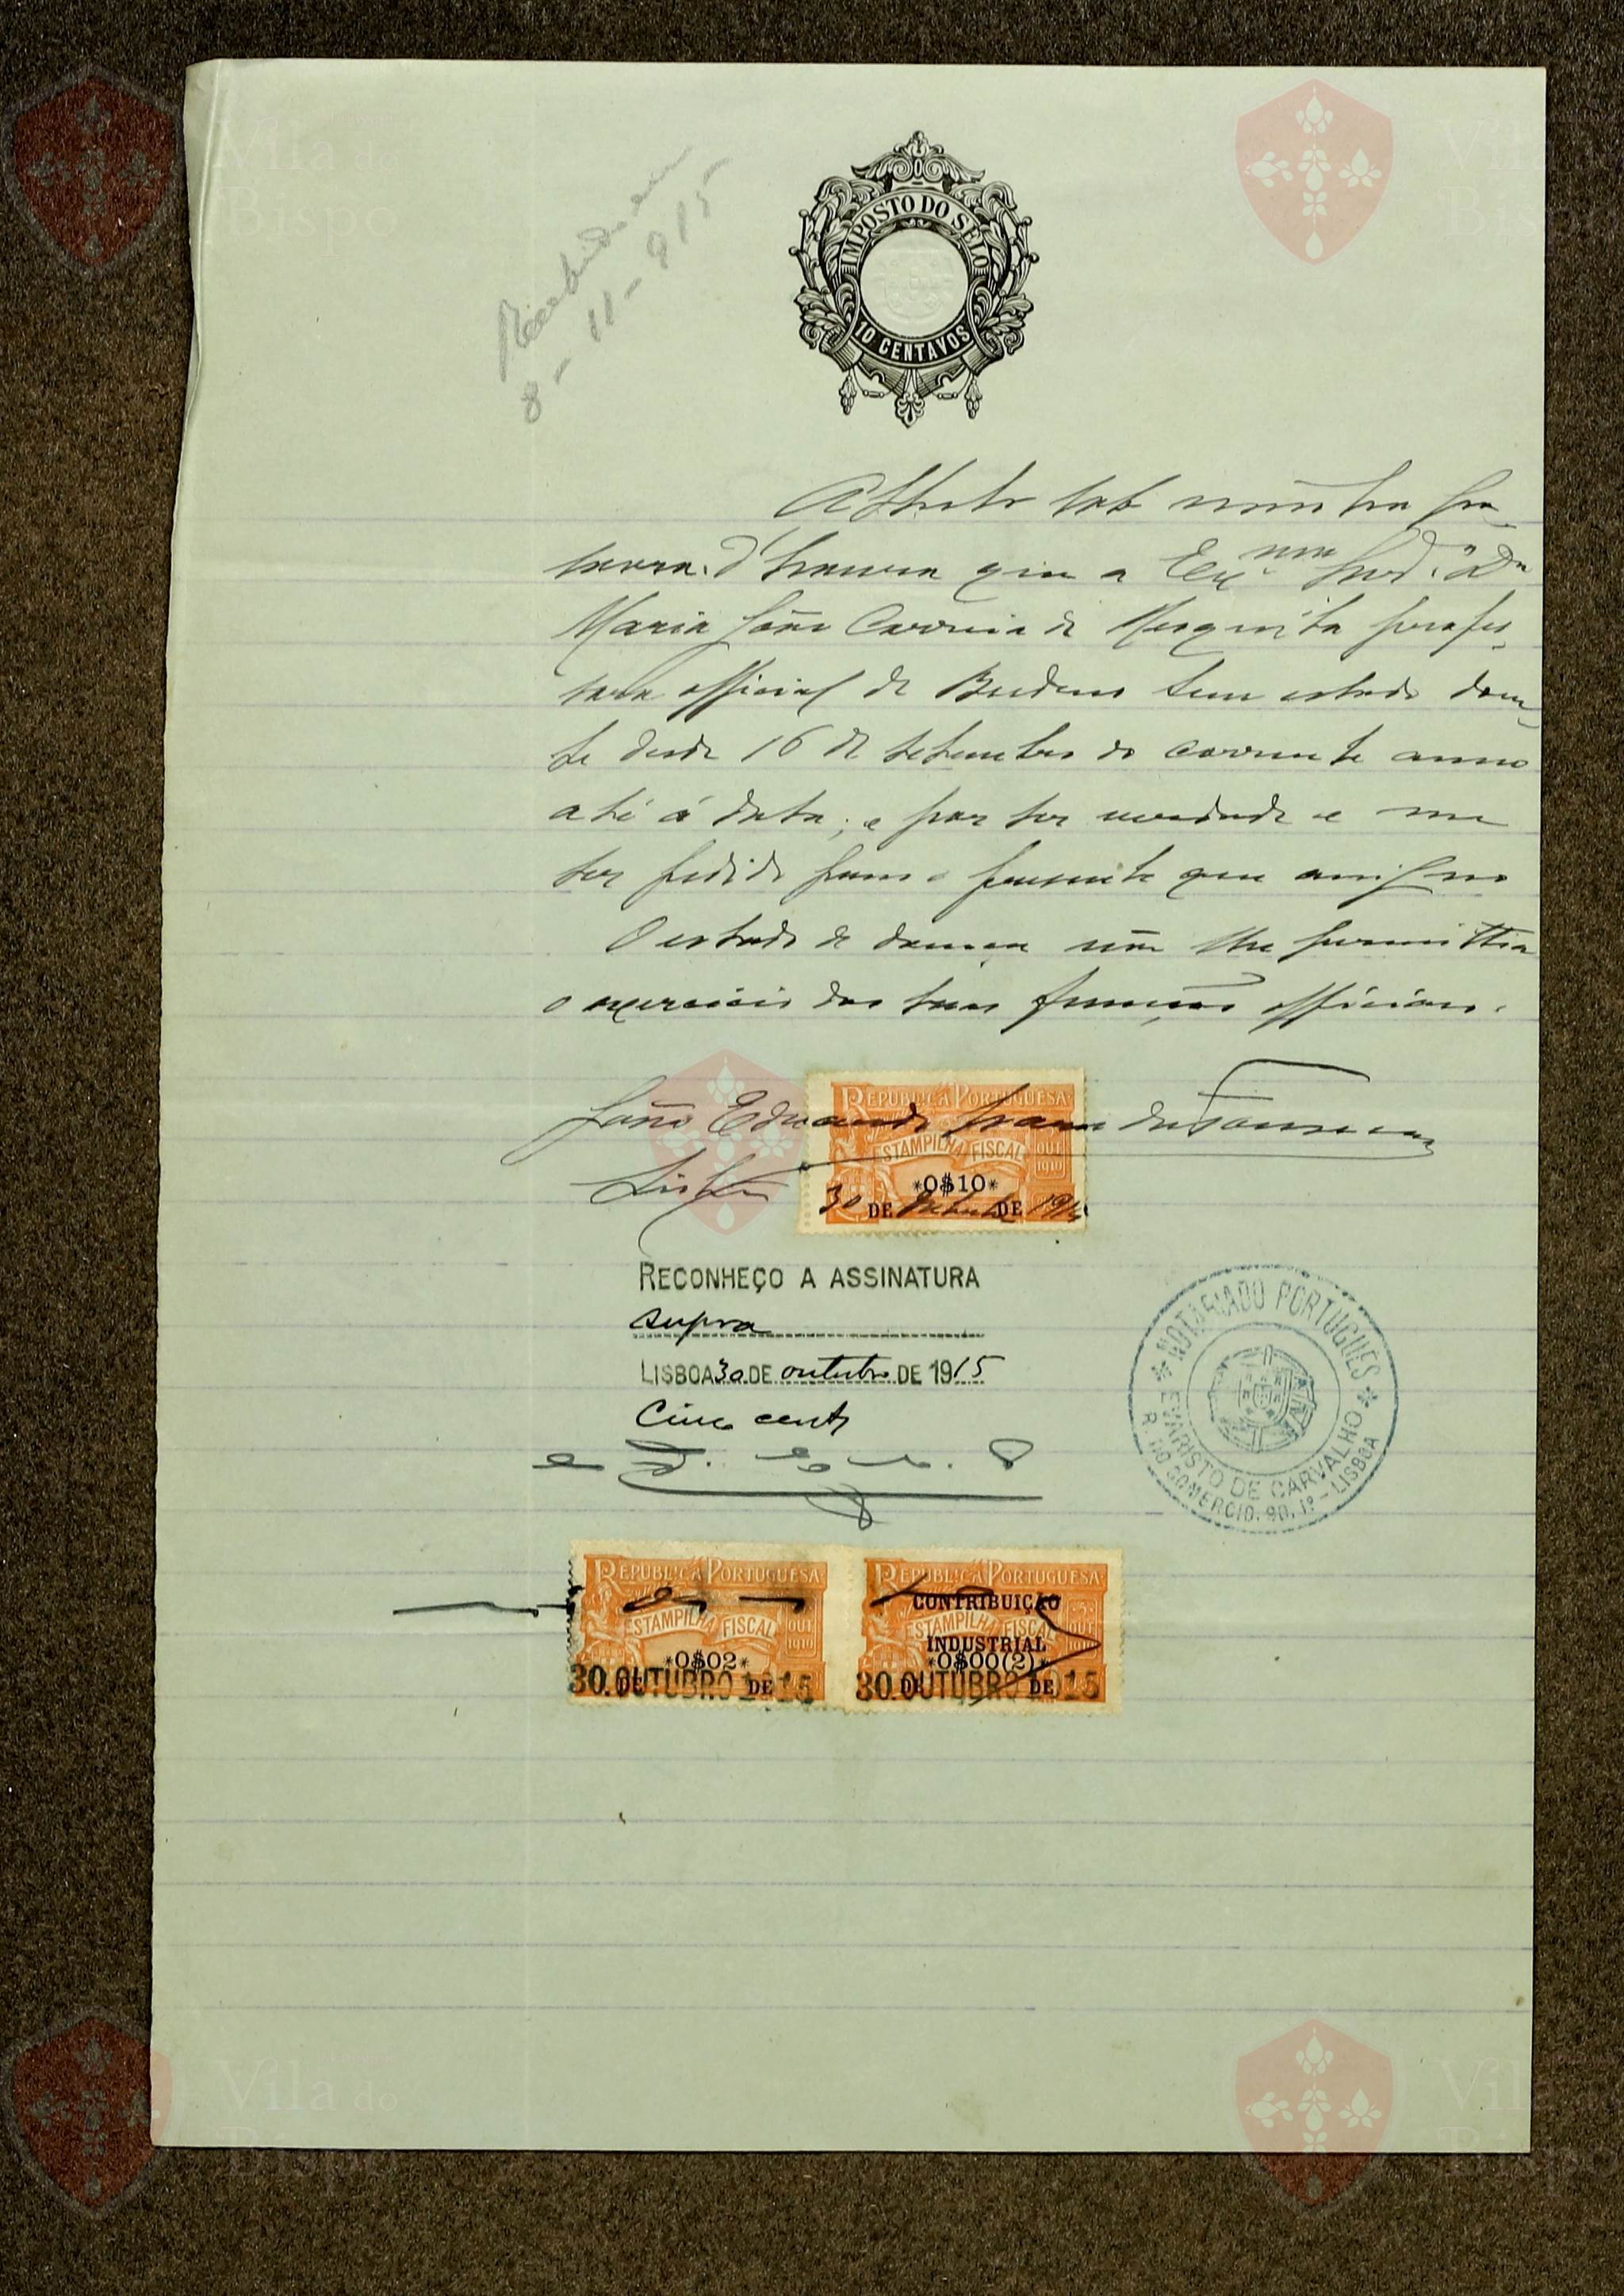 Recebido em
8-11-915
IMPOSTO DO SELO
10 CENTAVOS
Attesto sob minha pa-
lavra d'honra que a Ex.ma Snr.ª D.a
Maria João Correia de Mesquita profes-
sora official de Budens tem estado doen-
te desde 16 de setembro do corrente anno
até á data; e por ser verdade e me
ser pedido passo o presente que assigno
O estado de doença não lhe permittia
o exercicio das suas funcções officiaes.
João Eduardo da Fonseca
REPUBLICA PORTUGUESA
ESTAMPILHA FISCAL
OUT 1910
*0$10*
Lisboa 30 DE Outubro DE 1915
RECONHEÇO A ASSINATURA
supra
LISBOA 30 DE outubro DE 1915
Cinco cent
NOTARIADO PORTUGUÊS
EVARISTO DE CARVALHO
R. DO COMERCIO. 90. 1º - LISBOA
REPUBLICA PORTUGUESA
ESTAMPILHA FISCAL
OUT 1910
*0$02*
DE DE
30. OUTUBRO 1915
REPUBLICA PORTUGUESA
CONTRIBUIÇÃO
ESTAMPILHA FISCAL
INDUSTRIAL
*0$00(2)*
DE DE
30 OUTUBRO 1915
Vila do
Bispo
Vila do
Bispo